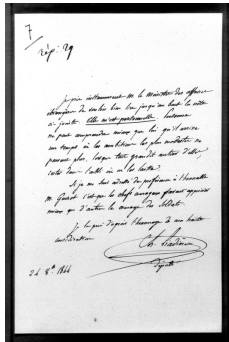 7
rép. 29
Je prie instamment M. le Ministre des affaires
étrangères de vouloir bien lire jusqu'au bout la note
ci jointe. Elle m'est personnelle. Personne
ne peut comprendre mieux que lui qu'il arrive
un temps où les ambitions les plus modestes ne
peuvent plus, lorsque tout grandit autour d'elles,
rester dans l'oubli
Et je me suis adressé de préférence à l'honorable
M. Guizot c'est que les chefs savent apprécier
mieux que d'autres le courage des soldats.
Je le prie d'agréer l'hommage de ma haute
considération
Député
24 8.bre 1844